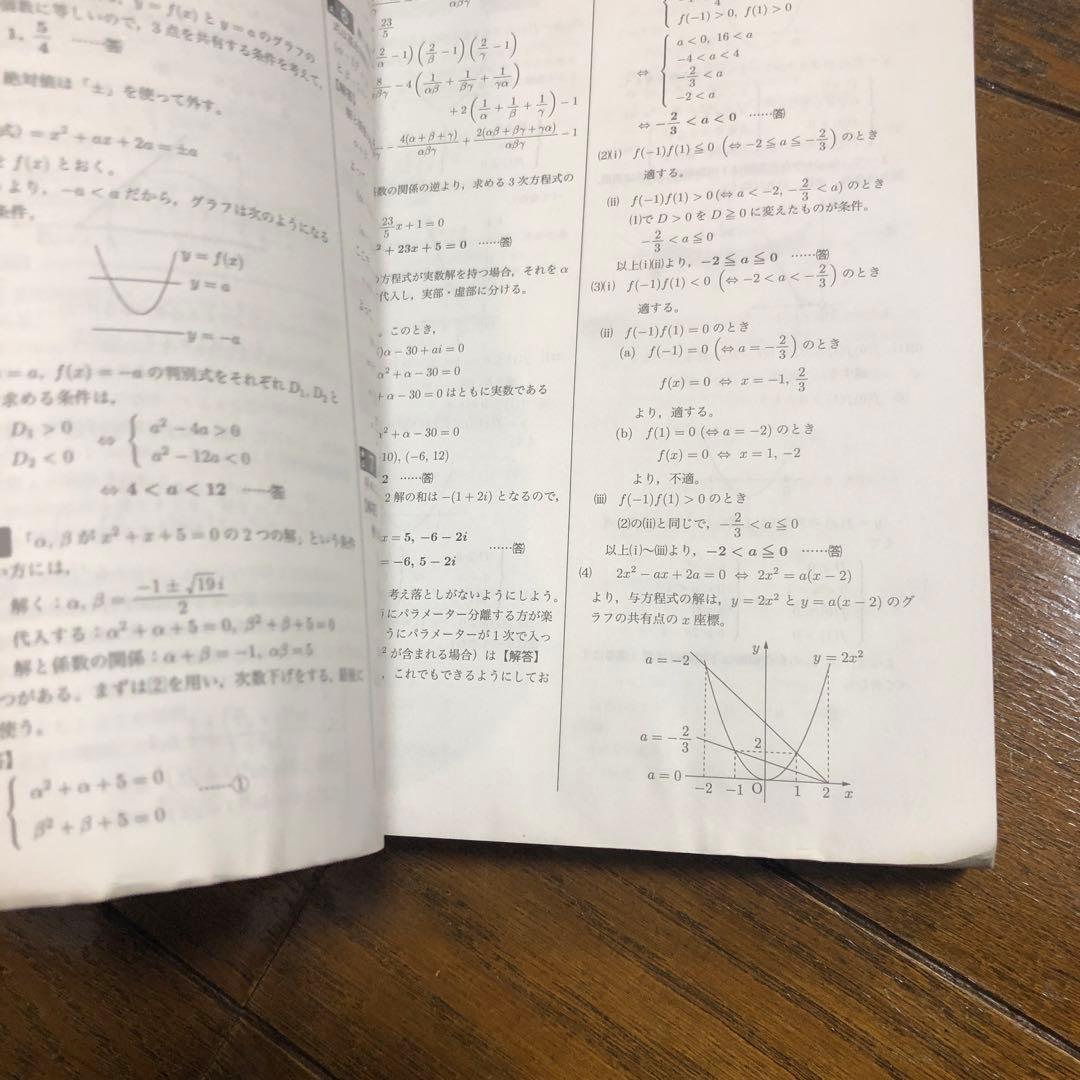 y = f(x) と y = a のグラフの
個数に等しいので，3 点を共有する条件を考えて，
1, 5/4 ……答
絶対値は「±」を使って外す。
式) = x² + ax + 2a = ±a
f(x) とおく。
より，−a < a だから，グラフは次のようになる
条件。
y = f(x)
y = a
y = −a
= a, f(x) = −a の判別式をそれぞれ D₁, D₂ と
求める条件は，
D₁ > 0
D₂ < 0
⇔ { a² − 4a > 0
a² − 12a < 0
⇔ 4 < a < 12 ……答
「α, β が x² + x + 5 = 0 の 2 つの解」という条件
い方には，
解く：α, β = (−1 ± √19 i)/2
代入する：α² + α + 5 = 0, β² + β + 5 = 0
解と係数の関係：α + β = −1, αβ = 5
つがある。まずは[2]を用い，次数下げをする。最後に
使う。
α² + α + 5 = 0 ……①
β² + β + 5 = 0
23/5
(2/α − 1)(2/β − 1)(2/γ − 1)
8/αβγ − 4(1/αβ + 1/βγ + 1/γα)
+ 2(1/α + 1/β + 1/γ) − 1
− 4(α + β + γ)/αβγ + 2(αβ + βγ + γα)/αβγ − 1
係数の関係の逆より，求める 3 次方程式の
23/5 x + 1 = 0
² + 23x + 5 = 0 ……答
方程式が実数解を持つ場合，それを α
代入し，実部・虚部に分ける。
このとき，
)α − 30 + ai = 0
α² + α − 30 = 0
+ α − 30 = 0 はともに実数である
² + α − 30 = 0
10), (−6, 12)
2 ……答
2 解の和は −(1 + 2i) となるので，
x = 5, −6 − 2i
= −6, 5 − 2i ……答
考え落としがないようにしよう。
うにパラメーター分離する方が楽
うにパラメーターが 1 次で入っ
² が含まれる場合）は【解答】
，これでもできるようにしてお
f(−1) > 0, f(1) > 0
⇔ { a < 0, 16 < a
−4 < a < 4
−2/3 < a
−2 < a
⇔ −2/3 < a < 0 ……答
(2)(i) f(−1)f(1) ≦ 0 (⇔ −2 ≦ a ≦ −2/3) のとき
適する。
(ii) f(−1)f(1) > 0 (⇔ a < −2, −2/3 < a) のとき
(1)で D > 0 を D ≧ 0 に変えたものが条件。
−2/3 < a ≦ 0
以上(i)(ii)より，−2 ≦ a ≦ 0 ……答
(3)(i) f(−1)f(1) < 0 (⇔ −2 < a < −2/3) のとき
適する。
(ii) f(−1)f(1) = 0 のとき
(a) f(−1) = 0 (⇔ a = −2/3) のとき
f(x) = 0 ⇔ x = −1, 2/3
より，適する。
(b) f(1) = 0 (⇔ a = −2) のとき
f(x) = 0 ⇔ x = 1, −2
より，不適。
(iii) f(−1)f(1) > 0 のとき
(2)の(ii)と同じで，−2/3 < a ≦ 0
以上(i)〜(iii)より，−2 < a ≦ 0 ……答
(4) 2x² − ax + 2a = 0 ⇔ 2x² = a(x − 2)
より，与方程式の解は，y = 2x² と y = a(x − 2) のグ
ラフの共有点の x 座標。
a = −2
y
y = 2x²
a = −2/3
2
a = 0
−2 −1 O 1 2 x